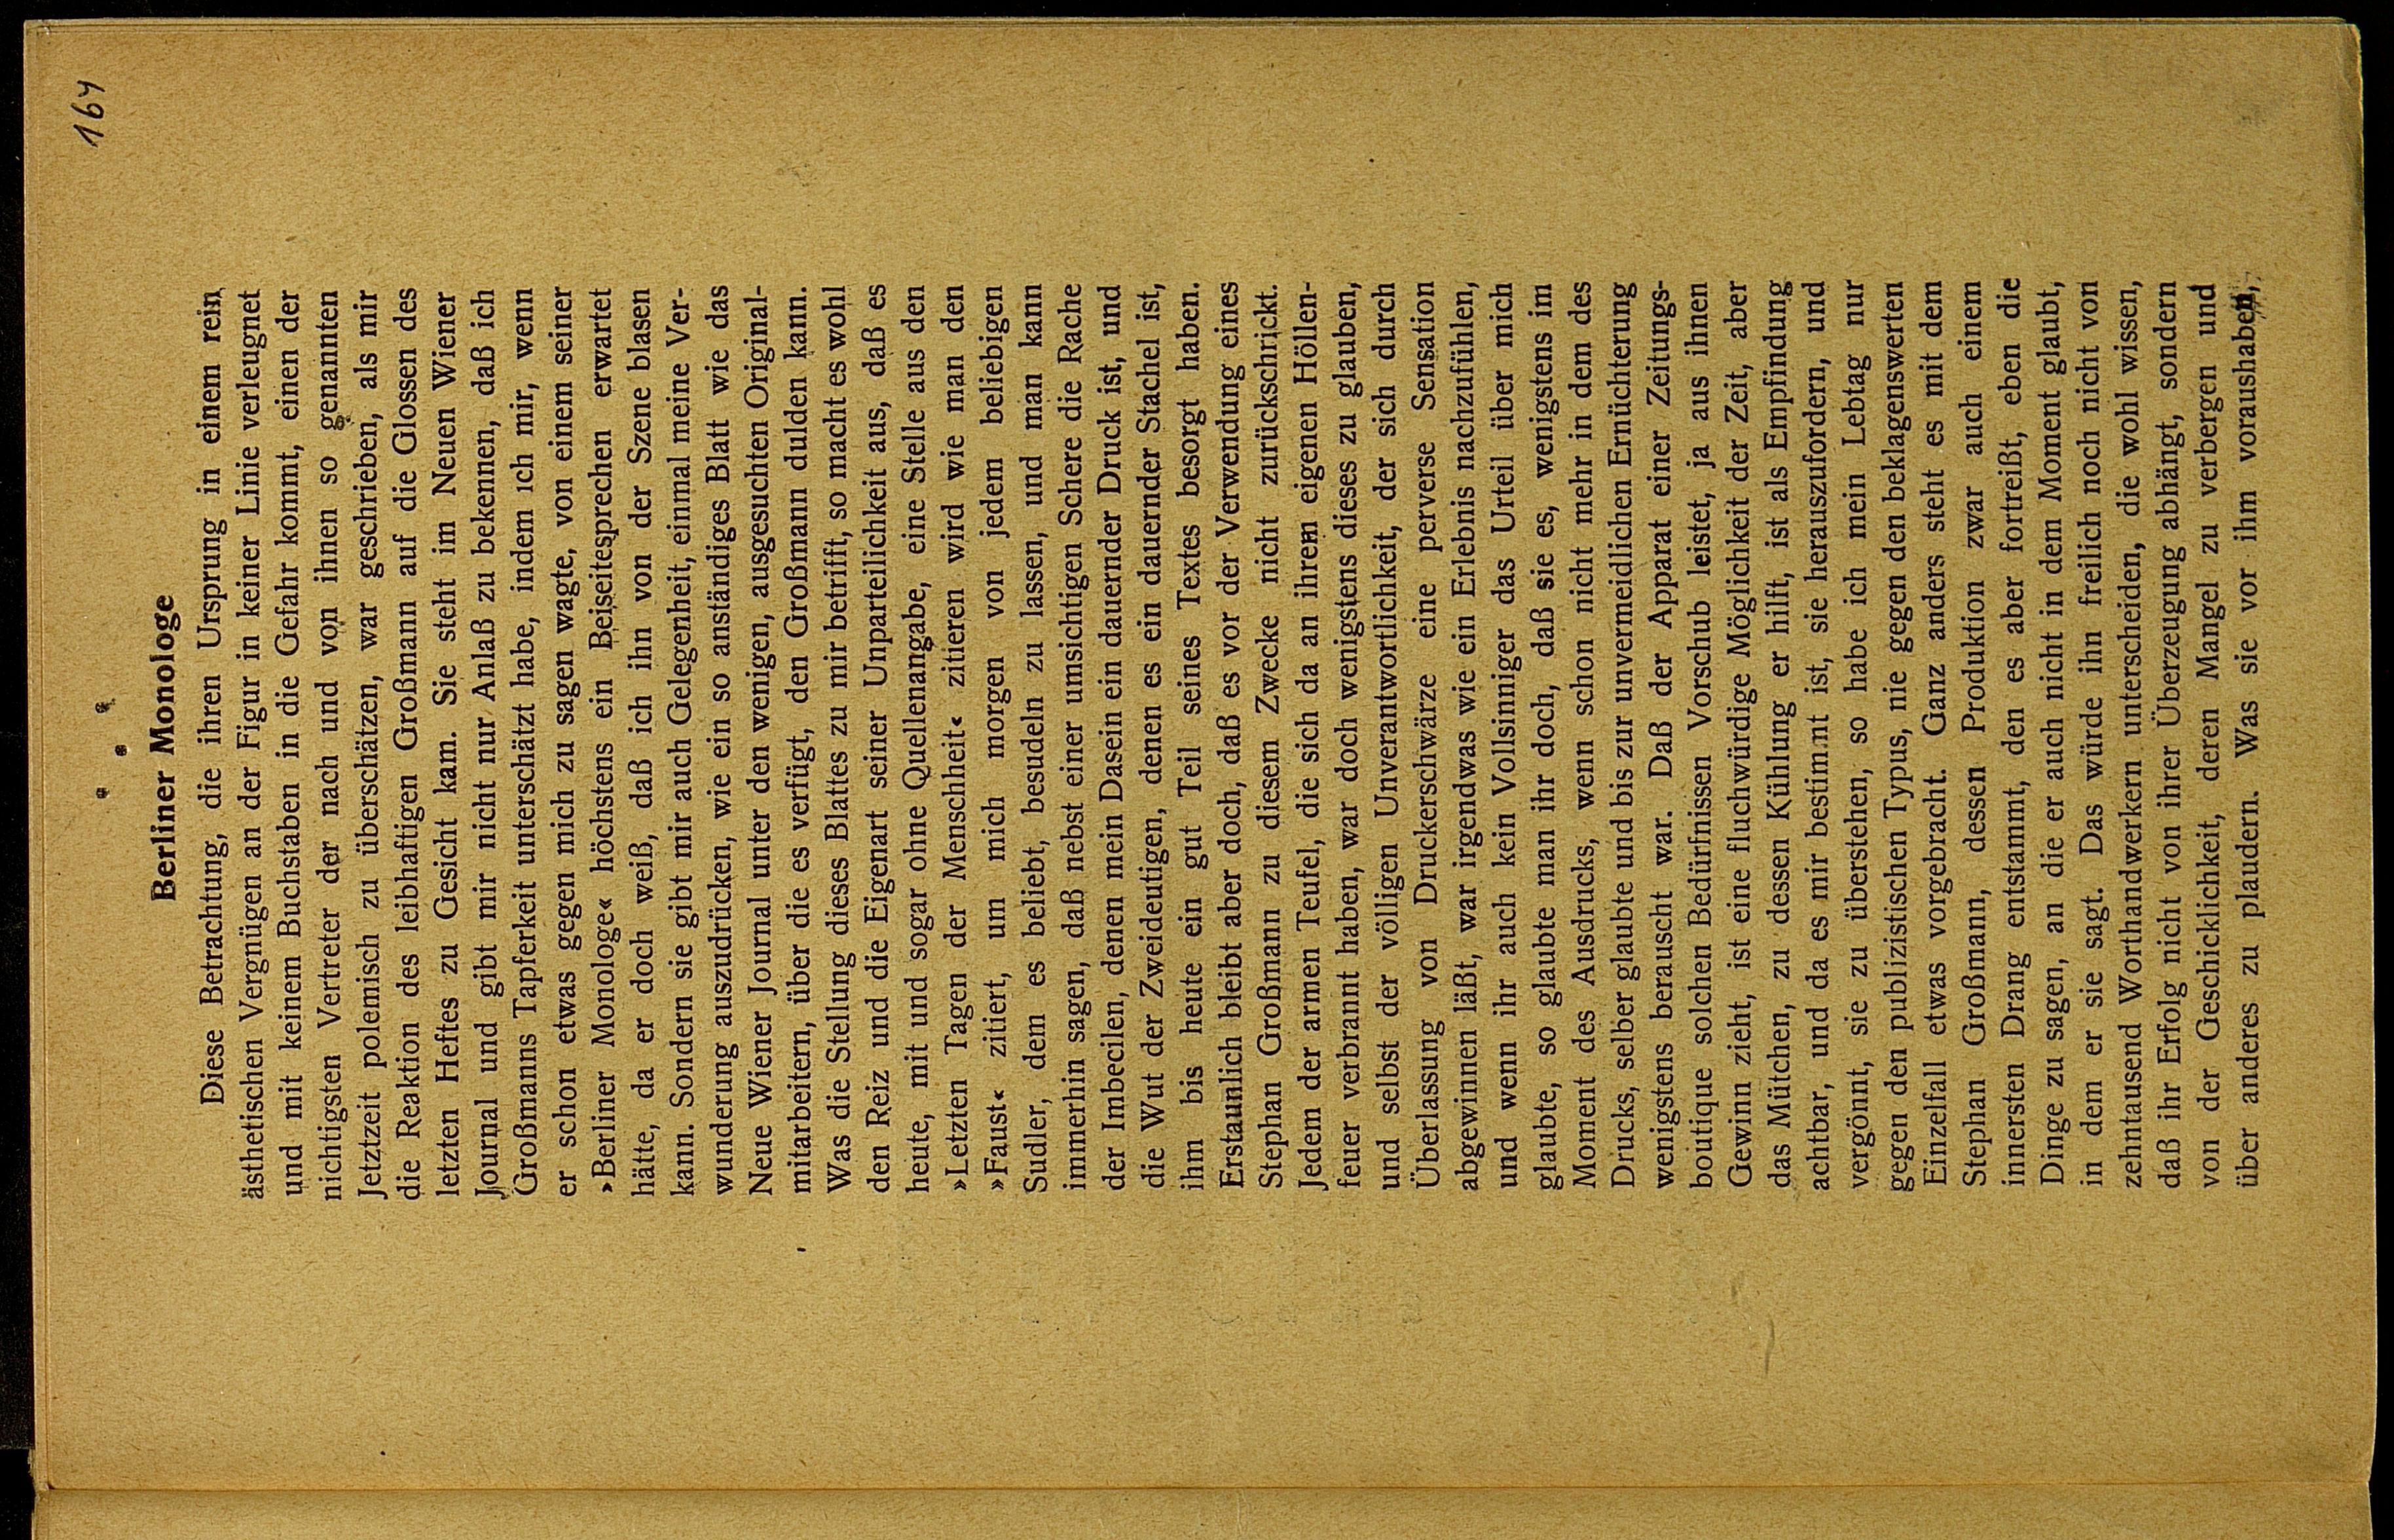 164
* * *
Berliner Monologe
Diese Betrachtung, die ihren Ursprung in einem rein
ästhetischen Vergnügen an der Figur in keiner Linie verleugnet
und mit keinem Buchstaben in die Gefahr kommt, einen der
nichtigsten Vertreter der nach und von ihnen so genannten
Jetztzeit polemisch zu überschätzen, war geschrieben, als mir
die Reaktion des leibhaftigen Großmann auf die Glossen des
letzten Heftes zu Gesicht kam. Sie steht im Neuen Wiener
Journal und gibt mir nicht nur Anlaß zu bekennen, daß ich
Großmanns Tapferkeit unterschätzt habe, indem ich mir, wenn
er schon etwas gegen mich zu sagen wagte, von einem seiner
»Berliner Monologe« höchstens ein Beiseitesprechen erwartet
hätte, da er doch weiß, daß ich ihn von der Szene blasen
kann. Sondern sie gibt mir auch Gelegenheit, einmal meine Ver-
wunderung auszudrücken, wie ein so anständiges Blatt wie das
Neue Wiener Journal unter den wenigen, ausgesuchten Original-
mitarbeitern, über die es verfügt, den Großmann dulden kann.
Was die Stellung dieses Blattes zu mir betrifft, so macht es wohl
den Reiz und die Eigenart seiner Unparteilichkeit aus, daß es
heute, mit und sogar ohne Quellenangabe, eine Stelle aus den
»Letzten Tagen der Menschheit« zitieren wird wie man den
»Faust« zitiert, um mich morgen von jedem beliebigen
Sudler, dem es beliebt, besudeln zu lassen, und man kann
immerhin sagen, daß nebst einer umsichtigen Schere die Rache
der Imbecilen, denen mein Dasein ein dauernder Druck ist, und
die Wut der Zweideutigen, denen es ein dauernder Stachel ist,
ihm bis heute ein gut Teil seines Textes besorgt haben.
Erstaunlich bleibt aber doch, daß es vor der Verwendung eines
Stephan Großmann zu diesem Zwecke nicht zurückschrickt.
Jedem der armen Teufel, die sich da an ihrem eigenen Höllen-
feuer verbrannt haben, war doch wenigstens dieses zu glauben,
und selbst der völligen Unverantwortlichkeit, der sich durch
Überlassung von Druckerschwärze eine perverse Sensation
abgewinnen läßt, war irgendwas wie ein Erlebnis nachzufühlen,
und wenn ihr auch kein Vollsinniger das Urteil über mich
glaubte, so glaubte man ihr doch, daß sie es, wenigstens im
Moment des Ausdrucks, wenn schon nicht mehr in dem des
Drucks, selber glaubte und bis zur unvermeidlichen Ernüchterung
wenigstens berauscht war. Daß der Apparat einer Zeitungs-
boutique solchen Bedürfnissen Vorschub leistet, ja aus ihnen
Gewinn zieht, ist eine fluchwürdige Möglichkeit der Zeit, aber
das Mütchen, zu dessen Kühlung er hilft, ist als Empfindung
achtbar, und da es mir bestimmt ist, sie herauszufordern, und
vergönnt, sie zu überstehen, so habe ich mein Lebtag nur
gegen den publizistischen Typus, nie gegen den beklagenswerten
Einzelfall etwas vorgebracht. Ganz anders steht es mit dem
Stephan Großmann, dessen Produktion zwar auch einem
innersten Drang entstammt, den es aber fortreißt, eben die
Dinge zu sagen, an die er auch nicht in dem Moment glaubt,
in dem er sie sagt. Das würde ihn freilich noch nicht von
zehntausend Worthandwerkern unterscheiden, die wohl wissen,
daß ihr Erfolg nicht von ihrer Überzeugung abhängt, sondern
von der Geschicklichkeit, deren Mangel zu verbergen und
über anderes zu plaudern. Was sie vor ihm voraushaben,